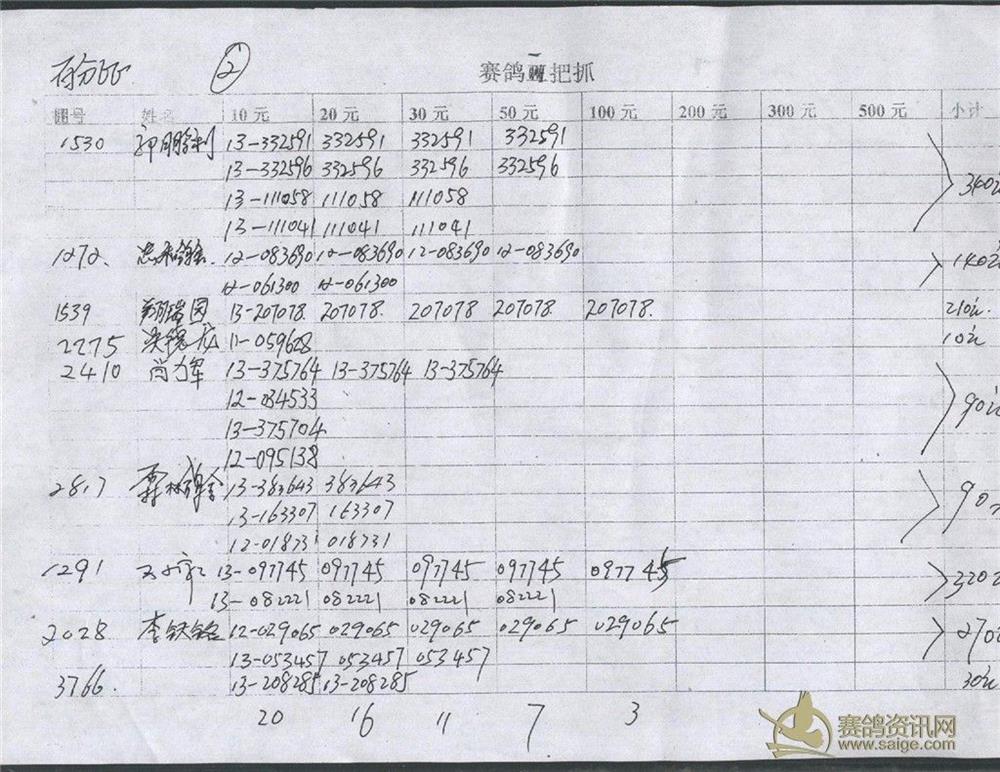 ②
赛鸽 把抓
棚号 姓名 10 元 20 元 30 元 50 元 100 元 200 元 300 元 500 元 小计
1530 13-332591 332591 332591 332591
13-332596 332596 332596 332596
13-111058 111058 111058
13-111041 111041 111041
340元
1272. 12-083690 12-083690 12-083690 12-083690
12-061300 12-061300
140元
1539 翔瑞园 13-207078. 207078. 207078 207078. 207078. 210元.
2275 11-059628 10元
2410 尚力军 13-375764 13-375764 13-375764
12-034533
13-375704
12-095138
90元
2817 13-383643 383643
13-163307 163307
12-018731 018731
90元
1291 13-097745 097745 097745 097745 097745
13-082221 082221 082221 082221
320元
2028 李铁铭 12-029065 029065 029065 029065 029065
13-053457 053457 053457
270元
3766. 13-208285 13-208285 30元
20 16 11 7 3
赛鸽资讯网
www.saige.com